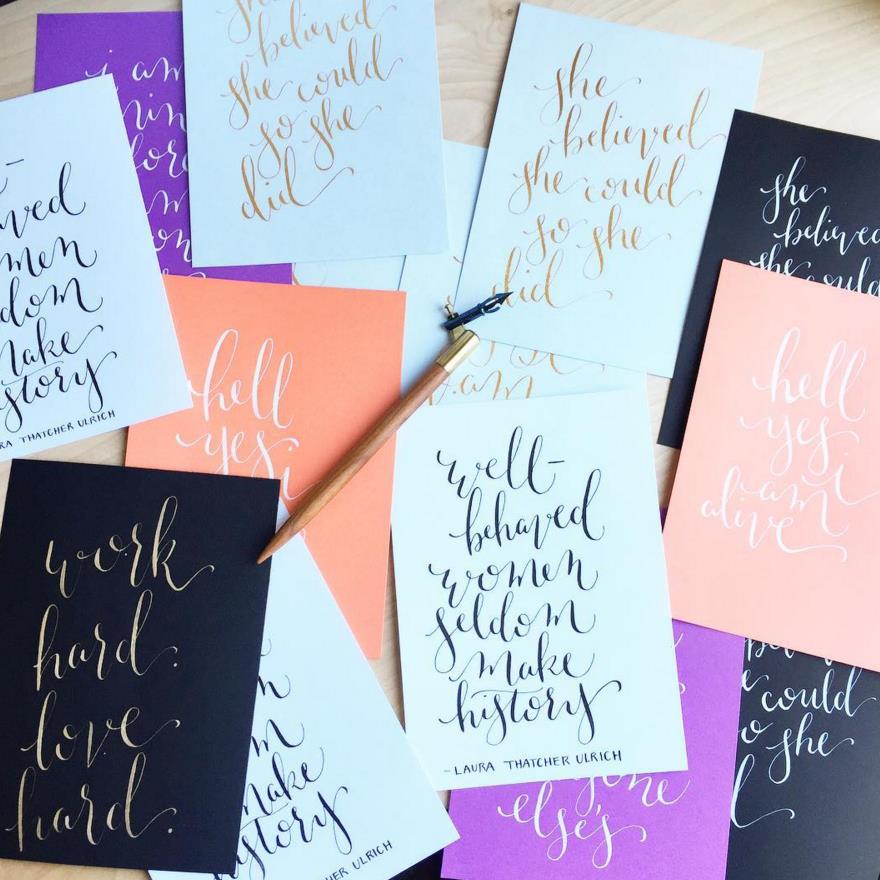 she
believed
she could
so she
did
she
believed
she could
so she
did
i am
she
believed
she could
women
seldom
make
history
THATCHER ULRICH
hell
yes
i
hell
yes i
am
alive
am
well-
behaved
women
seldom
make
history
-LAURA THATCHER ULRICH
work
hard.
love
hard.
make
history
ULRICH
else's
could
she